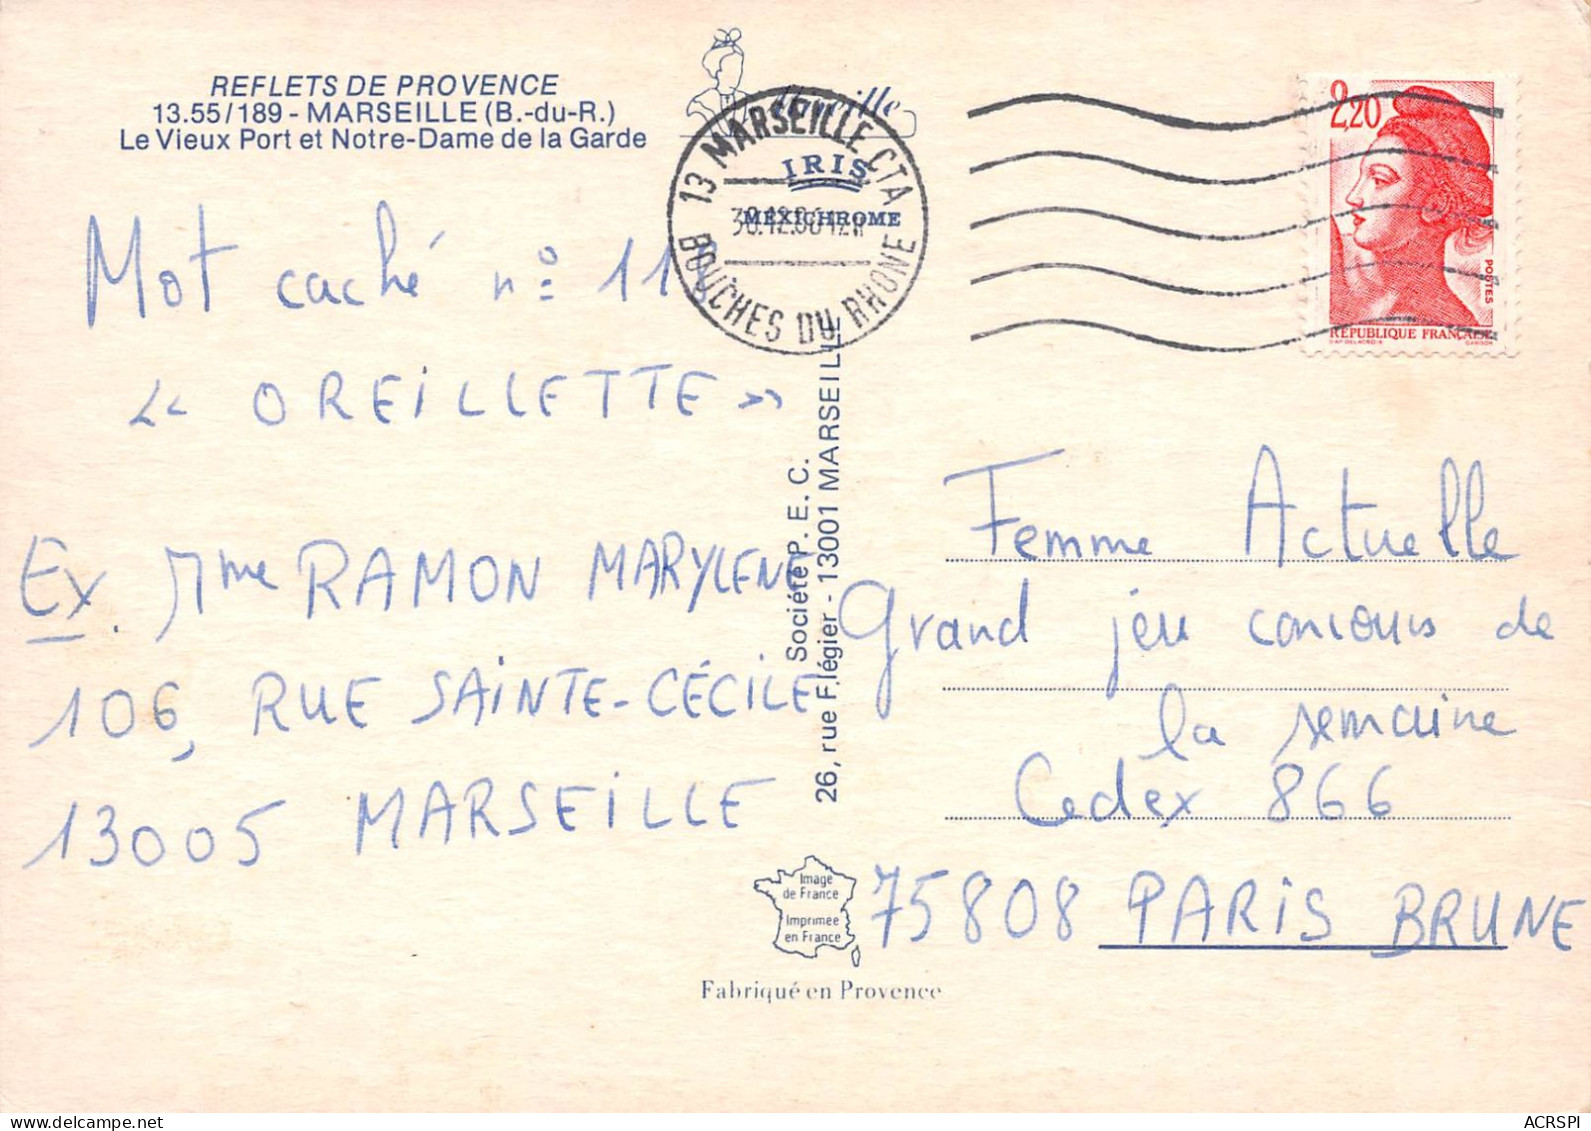 REFLETS DE PROVENCE
13.55/189 - MARSEILLE (B.-du-R.)
Le Vieux Port et Notre-Dame de la Garde
Mireille
IRIS
MEXICHROME
13 MARSEILLE CTA
BOUCHES DU RHONE
2,20
POSTES
REPUBLIQUE FRANÇAISE
Mot caché n° 11
« OREILLETTE »
Ex. Mme RAMON MARYLENE
106, RUE SAINTE-CÉCILE
13005 MARSEILLE
Société P. E. C.
26, rue F.légier - 13001 MARSEILLE
Femme Actuelle
Grand jeu concours de
la semaine
Cedex 866
75808 PARIS BRUNE
Image
de France
Imprimée
en France
Fabriqué en Provence
ACRSPI